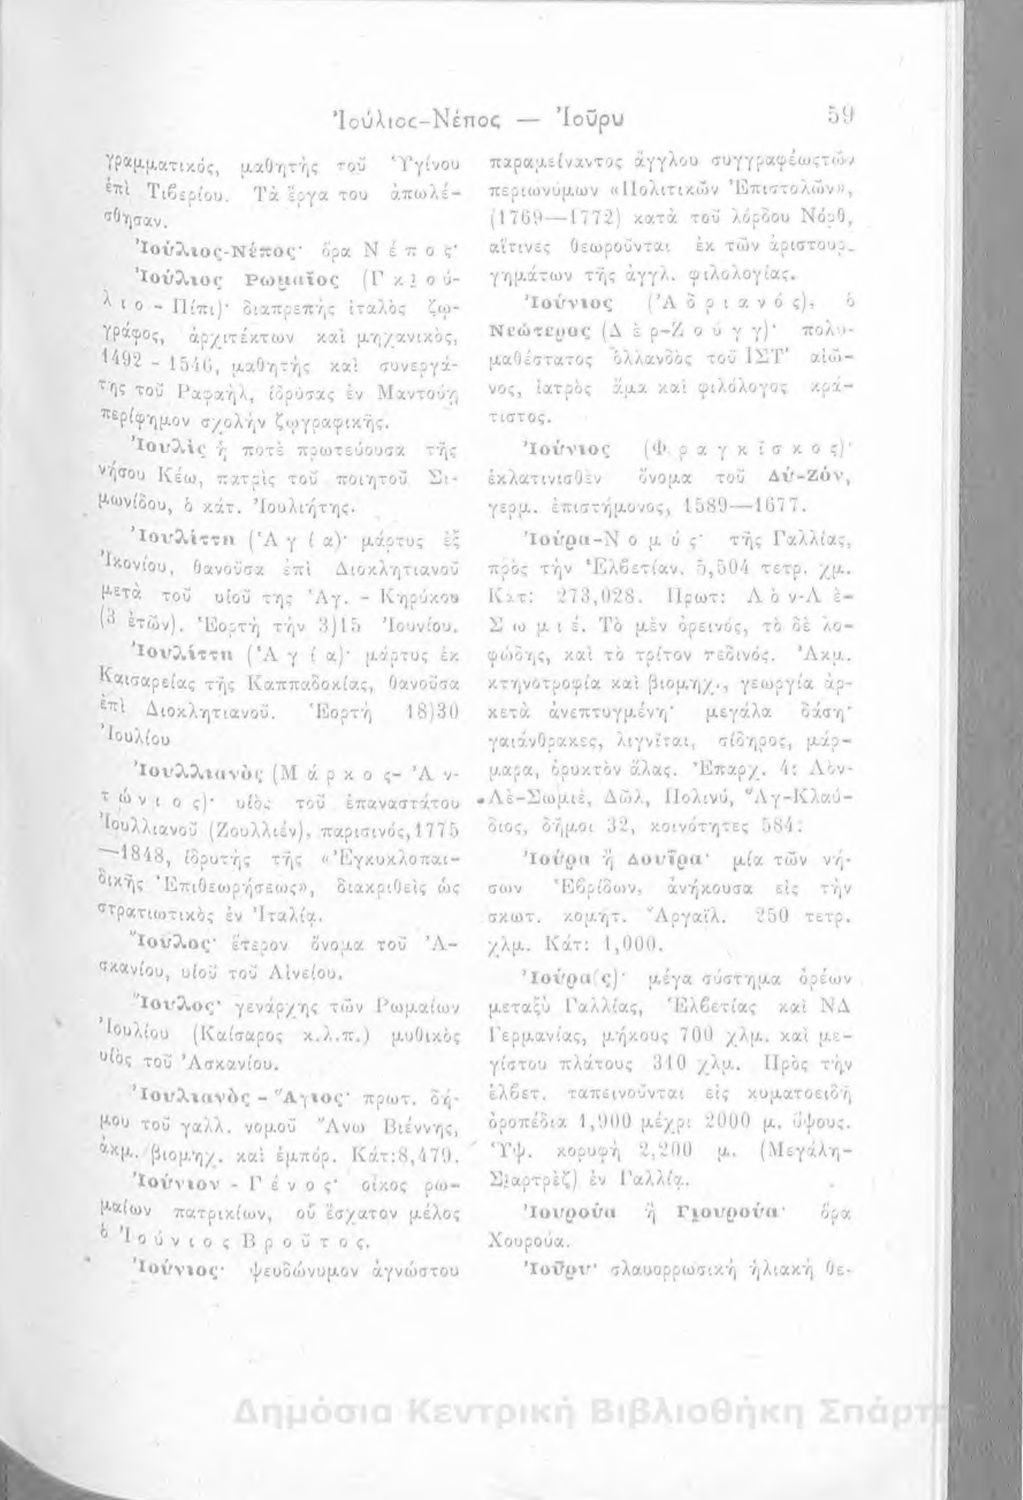 Ἰούλιος-Νέπος — Ἰοῦρυ 59
γραμματικός, μαθητὴς τοῦ Ὑγίνου
ἐπὶ Τιβερίου. Τὰ ἔργα του ἀπωλέ-
σθησαν.
Ἰούλιος-Νέπος· ὅρα Νέπος·
Ἰούλιος Ρωμαῖος (Γκιού-
λιο - Πίπι)· διαπρεπὴς ἰταλὸς ζω-
γράφος, ἀρχιτέκτων καὶ μηχανικὸς,
1492 - 1546, μαθητὴς καὶ συνεργά-
της τοῦ Ραφαὴλ, ἱδρύσας ἐν Μαντούῃ
περίφημον σχολὴν ζωγραφικῆς.
Ἰουλὶς ἡ ποτὲ πρωτεύουσα τῆς
νήσου Κέω, πατρὶς τοῦ ποιητοῦ Σι-
μωνίδου, ὁ κάτ. Ἰουλιήτης.
Ἰουλίττη (Ἁγία)· μάρτυς ἐξ
Ἰκονίου, θανοῦσα ἐπὶ Διοκλητιανοῦ
μετὰ τοῦ υἱοῦ της Ἁγ. - Κηρύκου
(3 ἐτῶν). Ἑορτὴ τὴν 3)15 Ἰουνίου.
Ἰουλίττη (Ἁγία)· μάρτυς ἐκ
Καισαρείας τῆς Καππαδοκίας, θανοῦσα
ἐπὶ Διοκλητιανοῦ. Ἑορτὴ 18)30
Ἰουλίου
Ἰουλλιανὸς (Μάρκος-Ἀν-
τώνιος)· υἱὸς τοῦ ἐπαναστάτου
Ἰουλλιανοῦ (Ζουλλιέν), παρισινός, 1775
—1848, ἱδρυτὴς τῆς «Ἐγκυκλοπαι-
δικῆς Ἐπιθεωρήσεως», διακριθεὶς ὡς
στρατιωτικὸς ἐν Ἰταλίᾳ.
Ἴουλος· ἕτερον ὄνομα τοῦ Ἀ-
σκανίου, υἱοῦ τοῦ Αἰνείου.
Ἴουλος· γενάρχης τῶν Ρωμαίων
Ἰουλίου (Καίσαρος κ.λ.π.) μυθικὸς
υἱὸς τοῦ Ἀσκανίου.
Ἰουλιανὸς - Ἅγιος· πρωτ. δή-
μου τοῦ γαλλ. νομοῦ Ἄνω Βιέννης,
ἀκμ. βιομηχ. καὶ ἐμπόρ. Κάτ: 8,479.
Ἰούνιον - Γένος· οἶκος ρω-
μαίων πατρικίων, οὗ ἔσχατον μέλος
ὁ Ἰούνιος Βροῦτος.
Ἰούνιος· ψευδώνυμον ἀγνώστου
παραμείναντος ἄγγλου συγγραφέως τῶν
περιωνύμων «Πολιτικῶν Ἐπιστολῶν»,
(1769—1772) κατὰ τοῦ λόρδου Νόρθ,
αἵτινες θεωροῦνται ἐκ τῶν ἀριστουρ-
γημάτων τῆς ἀγγλ. φιλολογίας.
Ἰούνιος (Ἀδριανός), ὁ
Νεώτερος (Δὲρ-Ζούγγ)· πολυ-
μαθέστατος ὁλλανδὸς τοῦ ΙΣΤ' αἰῶ-
νος, ἰατρὸς ἅμα καὶ φιλόλογος κρά-
τιστος.
Ἰούνιος (Φραγκῖσκος)·
ἐκλατινισθὲν ὄνομα τοῦ Δὺ-Ζόν,
γερμ. ἐπιστήμονος, 1589—1677.
Ἰούρα-Νομός· τῆς Γαλλίας,
πρὸς τὴν Ἑλβετίαν. 5,504 τετρ. χμ.
Κάτ: 273,028. Πρωτ: Λὸν-Λὲ-
Σωμιέ. Τὸ μὲν ὀρεινός, τὸ δὲ λο-
φώδης, καὶ τὸ τρίτον πεδινός. Ἀκμ.
κτηνοτροφία καὶ βιομηχ., γεωργία ἀρ-
κετὰ ἀνεπτυγμένη· μεγάλα δάση·
γαιάνθρακες, λιγνῖται, σίδηρος, μάρ-
μαρα, ὀρυκτὸν ἅλας. Ἐπαρχ. 4: Λὸν-
Λὲ-Σωμιέ, Δῶλ, Πολινύ, Ἅγ-Κλαύ-
διος, δῆμοι 32, κοινότητες 584.
Ἰούρα ἢ Δουῖρα· μία τῶν νή-
σων Ἑβρίδων, ἀνήκουσα εἰς τὴν
σκωτ. κομητ. Ἀργαϊλ. 250 τετρ.
χλμ. Κάτ: 1,000.
Ἰούρα(ς)· μέγα σύστημα ὀρέων
μεταξὺ Γαλλίας, Ἑλβετίας καὶ ΝΔ
Γερμανίας, μήκους 700 χλμ. καὶ με-
γίστου πλάτους 340 χλμ. Πρὸς τὴν
ἑλβετ. ταπεινοῦνται εἰς κυματοειδῆ
ὀροπέδια 1,900 μέχρι 2000 μ. ὕψους.
Ὑψ. κορυφὴ 2,200 μ. (Μεγάλη-
Σιαρτρὲζ) ἐν Γαλλίᾳ.
Ἰουρούα ἢ Γιουρούα· ὅρα
Χουρούα.
Ἰοῦρυ· σλαυορρωσικὴ ἡλιακὴ θε-
Δημόσια Κεντρική Βιβλιοθήκη Σπάρτ